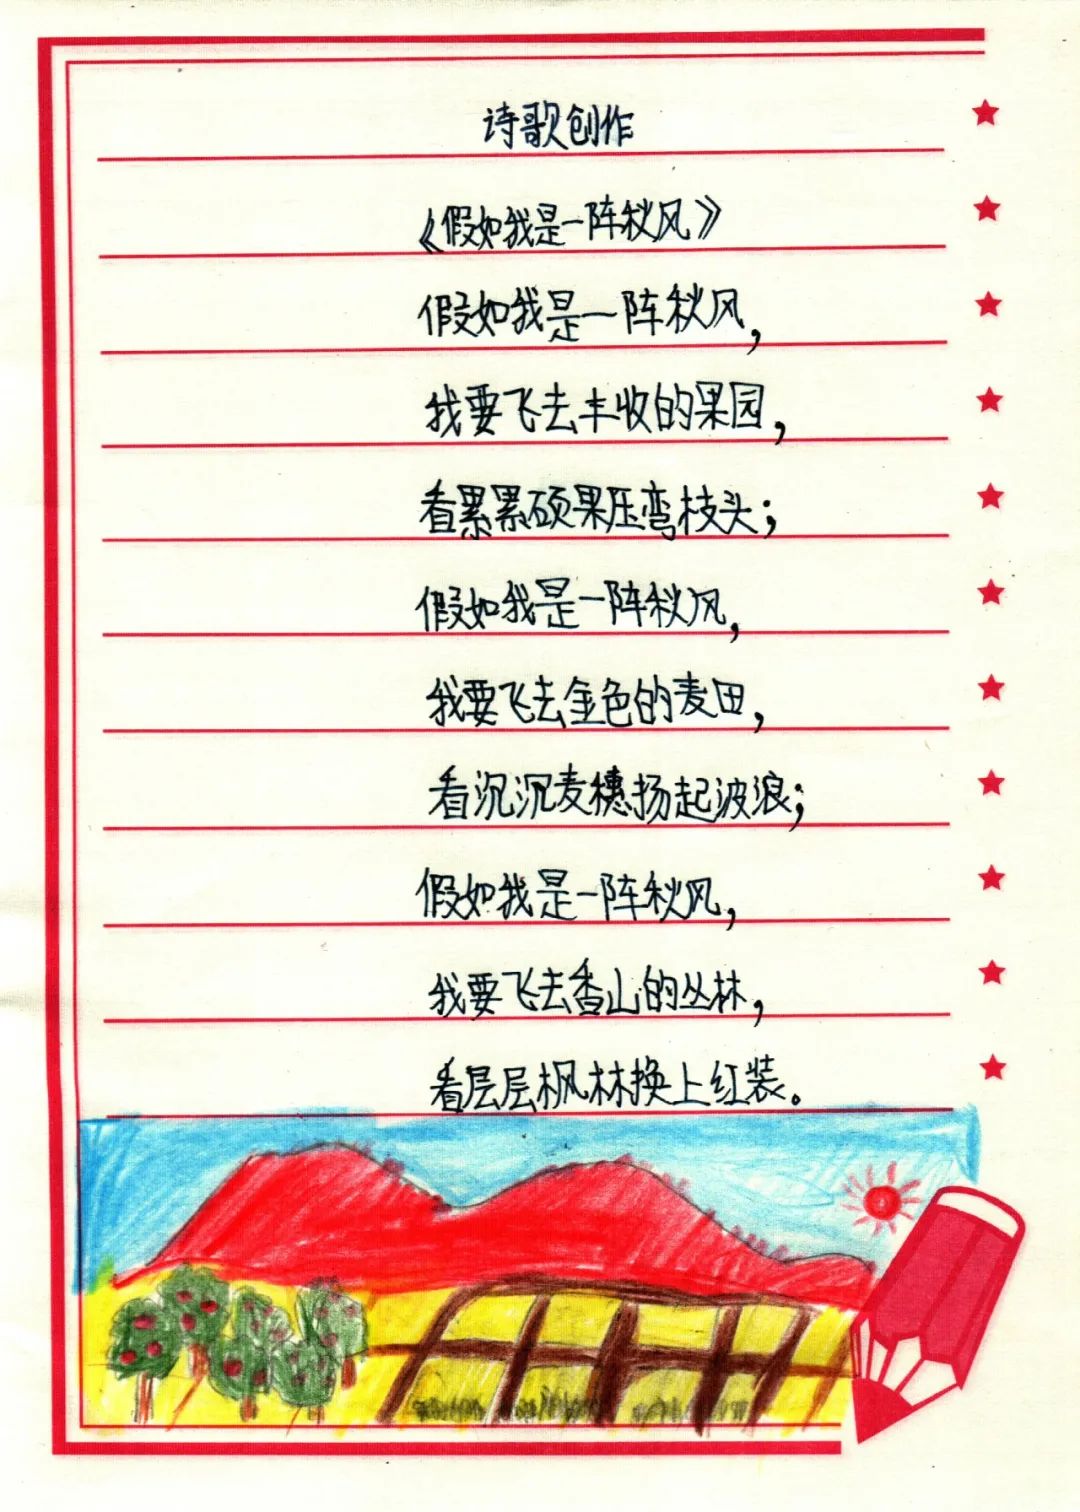 诗歌创作
《假如我是一阵秋风》
假如我是一阵秋风,
我要飞去丰收的果园,
看累累硕果压弯枝头;
假如我是一阵秋风,
我要飞去金色的麦田,
看沉沉麦穗扬起波浪;
假如我是一阵秋风,
我要飞去香山的丛林,
看层层枫林换上红装。